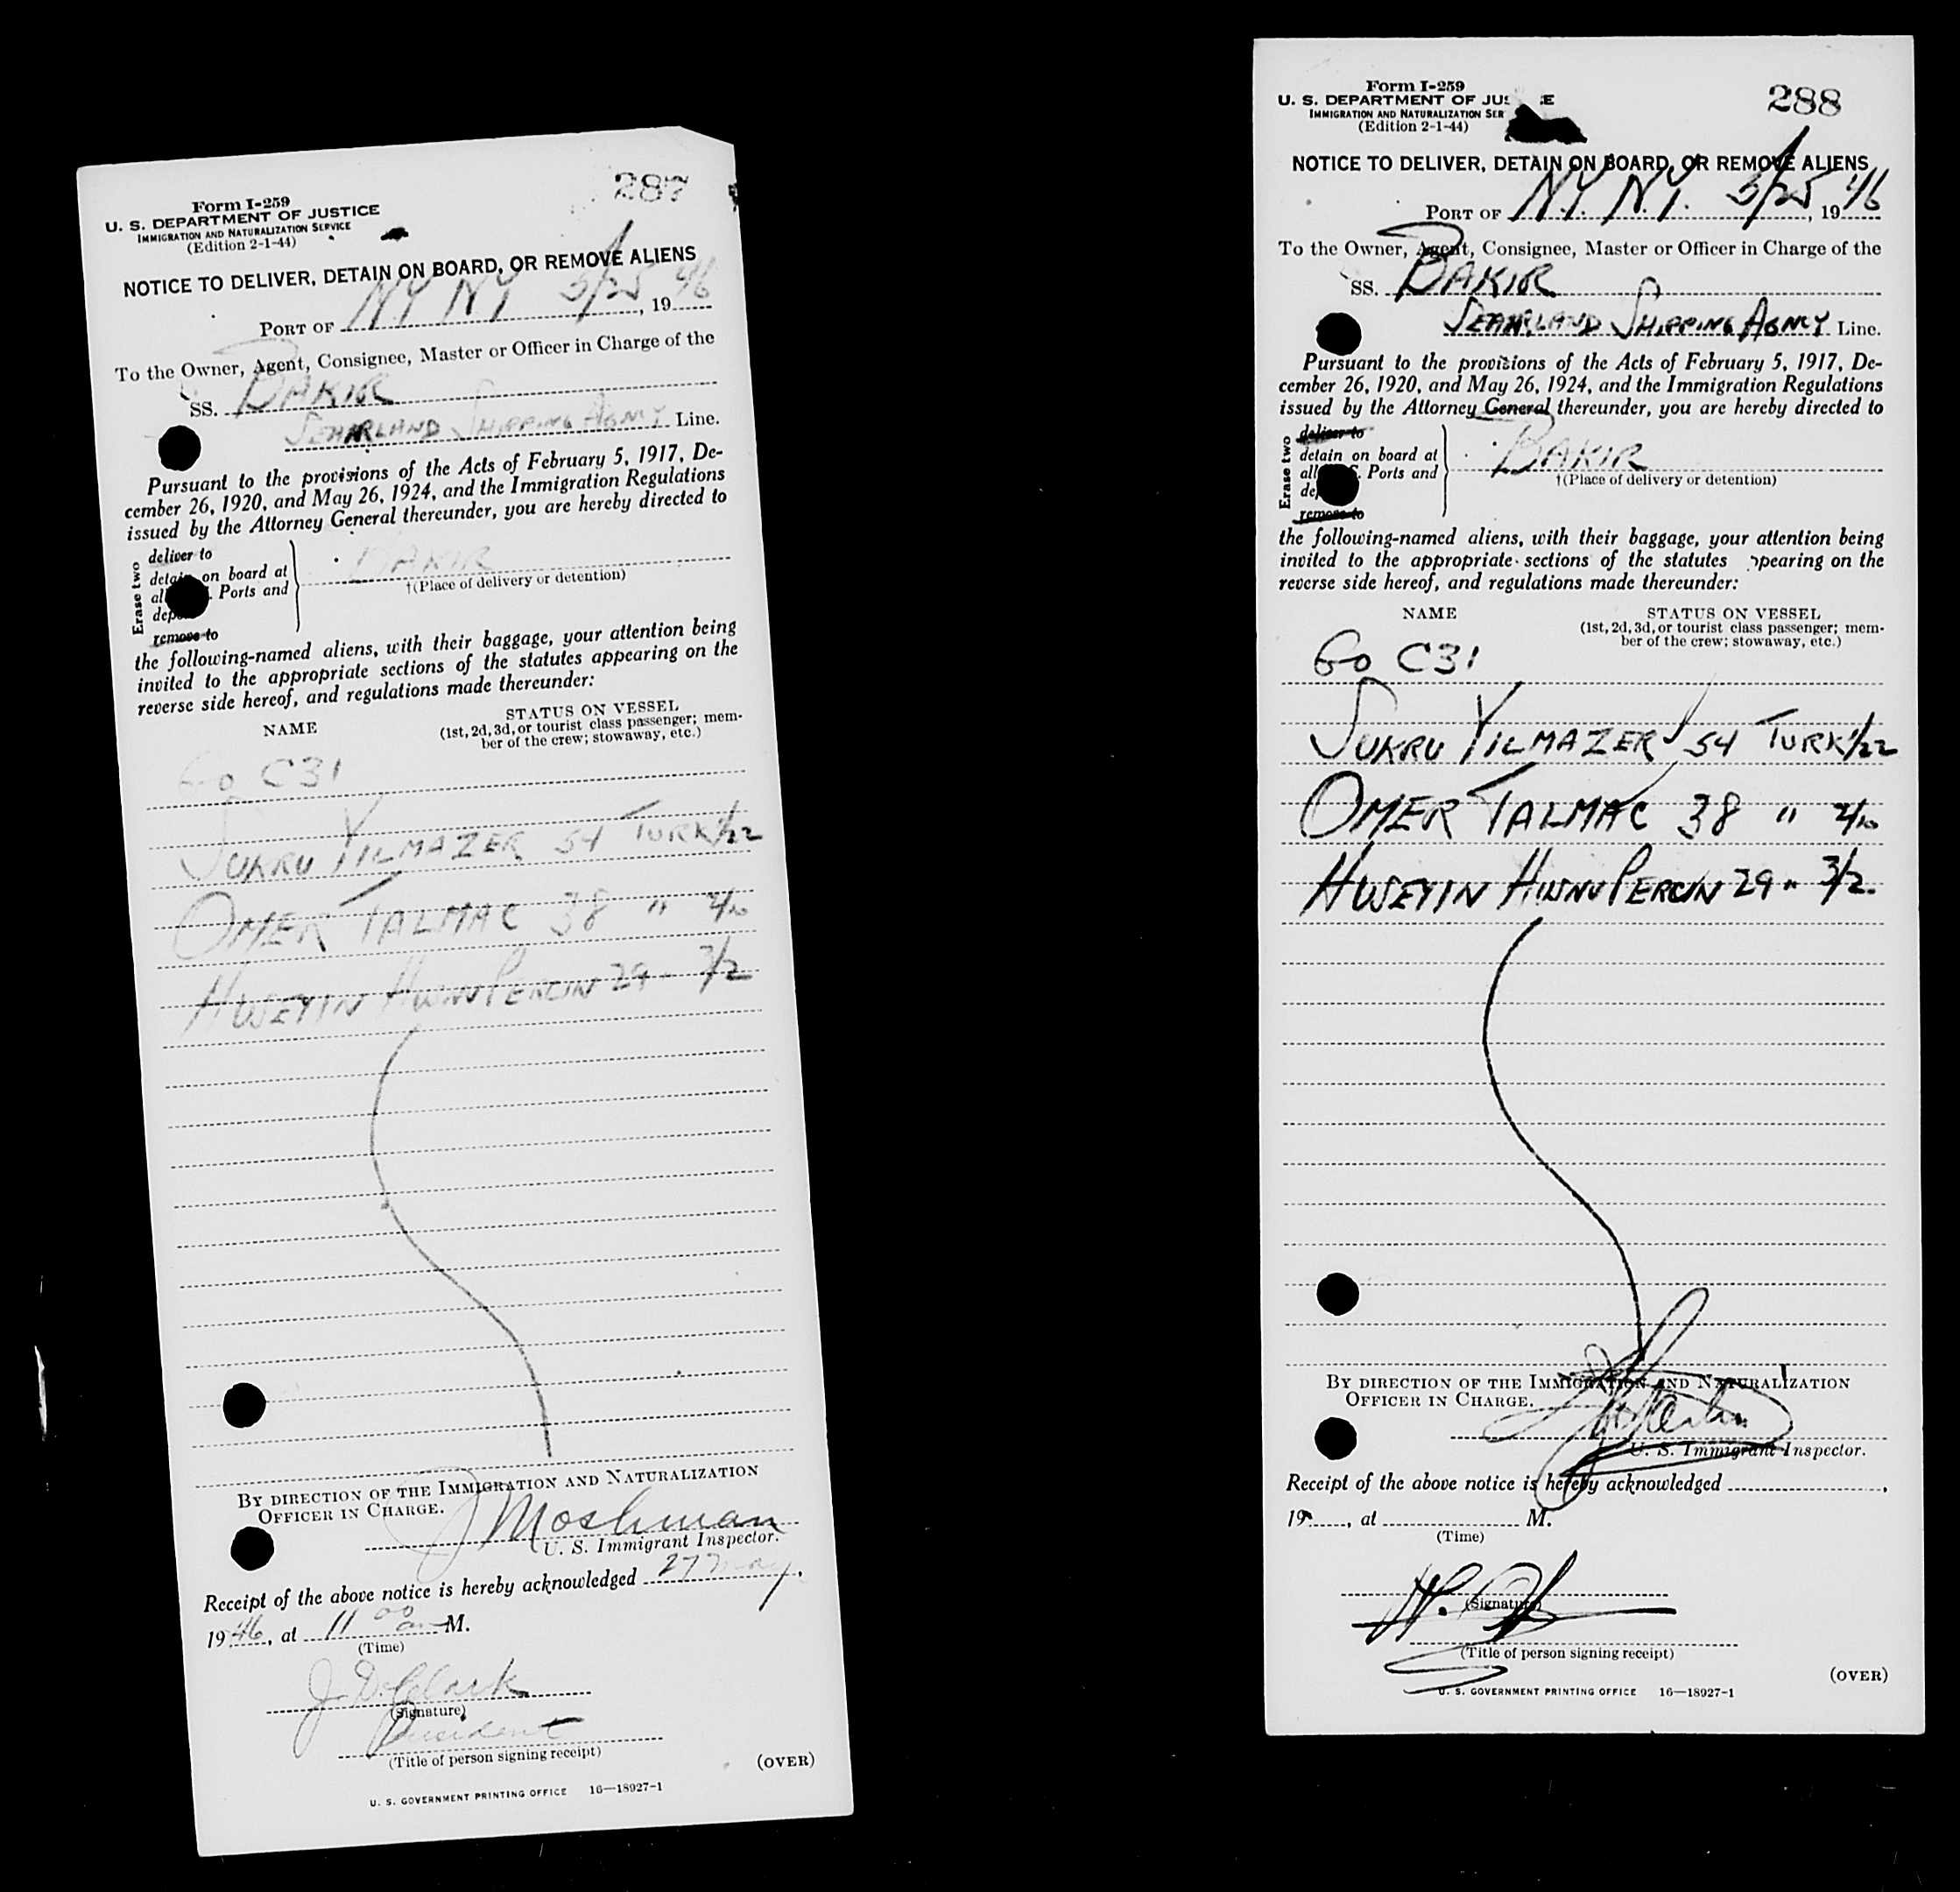 287
Form I-259
U. S. DEPARTMENT OF JUSTICE
IMMIGRATION AND NATURALIZATION SERVICE
(Edition 2-1-44)
NOTICE TO DELIVER, DETAIN ON BOARD, OR REMOVE ALIENS
PORT OF NY NY 5/25, 1946
To the Owner, Agent, Consignee, Master or Officer in Charge of the
SS. BAKIR
SHIPPING AGNCY Line.
Pursuant to the provisions of the Acts of February 5, 1917, De-
cember 26, 1920, and May 26, 1924, and the Immigration Regulations
issued by the Attorney General thereunder, you are hereby directed to
Erase two
deliver to
detain on board at
all Ports and
remove to
BAKIR
†(Place of delivery or detention)
the following-named aliens, with their baggage, your attention being
invited to the appropriate sections of the statutes appearing on the
reverse side hereof, and regulations made thereunder:
NAME STATUS ON VESSEL
(1st, 2d, 3d, or tourist class passenger; mem-
ber of the crew; stowaway, etc.)
Go C31
SUKRU YILMAZER 54 TURK 1/22
OMER TALMAC 38 "
HUSEYIN 29 " 3/2
BY DIRECTION OF THE IMMIGRATION AND NATURALIZATION
OFFICER IN CHARGE.
J Moshman
U. S. Immigrant Inspector.
Receipt of the above notice is hereby acknowledged 27 May,
1946, at 11 00 am M.
(Time)
J. D. Clark
(Signature)
President
(Title of person signing receipt)
(OVER)
U. S. GOVERNMENT PRINTING OFFICE 16—18927-1
288
Form I-259
U. S. DEPARTMENT OF JUS CE
IMMIGRATION AND NATURALIZATION SER
(Edition 2-1-44)
NOTICE TO DELIVER, DETAIN ON BOARD, OR REMOVE ALIENS
PORT OF N.Y. N.Y. 5/25, 1946
To the Owner, Agent, Consignee, Master or Officer in Charge of the
SS. BAKIR
SHIPPING AGNCY Line.
Pursuant to the provisions of the Acts of February 5, 1917, De-
cember 26, 1920, and May 26, 1924, and the Immigration Regulations
issued by the Attorney General thereunder, you are hereby directed to
Erase two
deliver to
detain on board at
all S. Ports and
remove to
BAKIR
†(Place of delivery or detention)
the following-named aliens, with their baggage, your attention being
invited to the appropriate sections of the statutes ppearing on the
reverse side hereof, and regulations made thereunder:
NAME STATUS ON VESSEL
(1st, 2d, 3d, or tourist class passenger; mem-
ber of the crew; stowaway, etc.)
Go C31
SUKRU YILMAZER 54 TURK 1/22
OMER TALMAC 38 "
HUSEYIN 29 " 3/2
BY DIRECTION OF THE IMMIGRATION AND NATURALIZATION
OFFICER IN CHARGE.
U. S. Immigrant Inspector.
Receipt of the above notice is hereby acknowledged ,
19 , at M.
(Time)
(Signature)
(Title of person signing receipt)
(OVER)
U. S. GOVERNMENT PRINTING OFFICE 16—18927-1